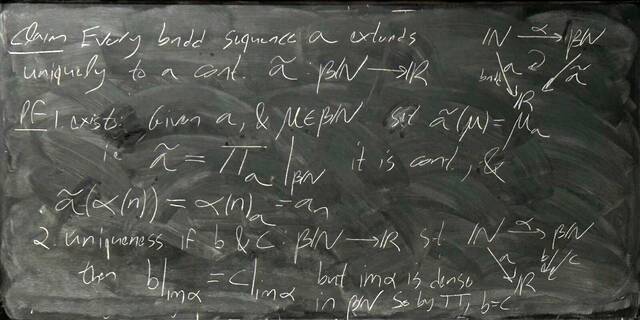 Claim Every bndd sequence a extends
uniquely to a cont. ã : βℕ → ℝ
ℕ —α→ βℕ
bndd a ã
ℝ
PF 1. exists: Given a, & μ∈βℕ set ã(μ) = μₐ
ie ã = πₐ|βℕ it is cont, &
ã(α(n)) = α(n)ₐ = aₙ
2. uniqueness if b & c : βℕ → ℝ st
ℕ —α→ βℕ
a b/c
ℝ
then b|imα = c|imα but imα is dense
in βℕ so by π, b=c